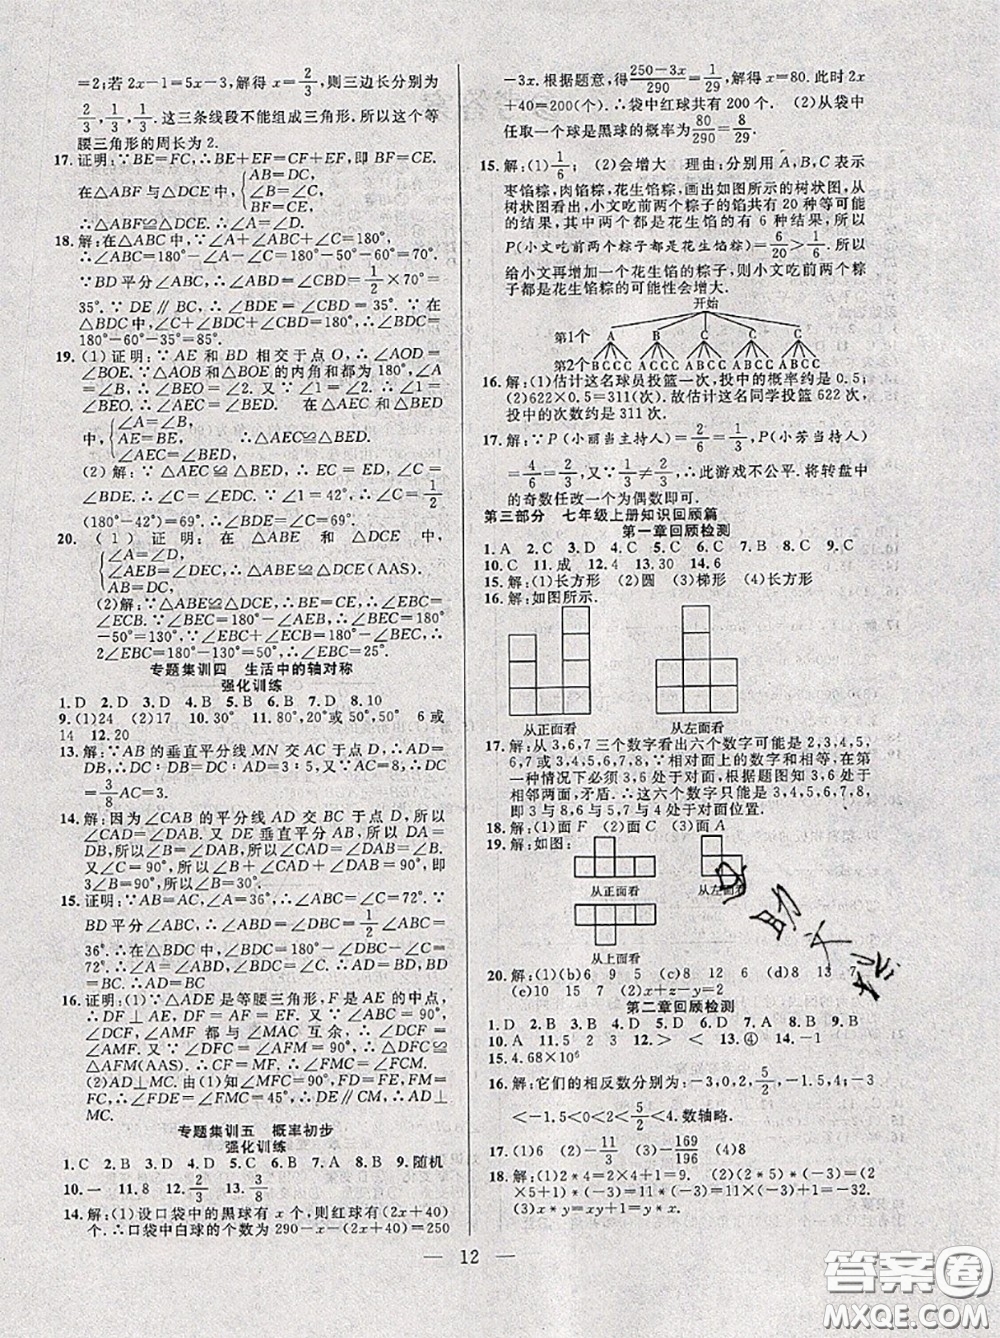 =2;若 2x-1=5x-3,解得 x=2/3,则三边长分别为
2/3,1/3,1/3.这三条线段不能组成三角形.所以这个等
腰三角形的周长为2.
17.证明:∵BE=FC,∴BE+EF=CF+EF,即BF=CE.
在△ABF与△DCE中,{AB=DC, ∠B=∠C, BF=CE,
∴△ABF≌△DCE.∴∠A=∠D.
18.解:在△ABC中,∵∠A+∠ABC+∠C=180°,
∴∠ABC=180°-∠A-∠C=180°-50°-60°=70°.
∵BD平分∠ABC,∴∠CBD=1/2∠ABC=1/2×70°=
35°.∵DE∥BC,∴∠BDE=∠CBD=35°.∵在
△BDC中,∠C+∠BDC+∠CBD=180°,∴∠BDC=
180°-60°-35°=85°.
19.(1)证明:∵AE和BD相交于点O,∴∠AOD=
∠BOE.∵△AOD和△BOE的内角和都为180°,∠A
=∠B,∴∠BEO=∠2.又∵∠1=∠2,∴∠1=
∠BEO.∴∠AEC=∠BED. 在△AEC和△BED
中,{∠A=∠B, AE=BE, ∠AEC=∠BED, ∴△AEC≌△BED.
(2)解:∵△AEC≌△BED,∴EC=ED,∠C
=∠BDE.∴∠C=∠EDC.∵∠1=40°,∴∠C=1/2
(180°-42°)=69°.∴∠BDE=69°.
20.(1)证明:在△ABE和△DCE中,
{∠A=∠D, ∠AEB=∠DEC, AB=DC, ∴△ABE≌△DCE(AAS).
(2)解:∵△ABE≌△DCE,∴BE=CE.∴∠EBC=
∠ECB.∵∠BEC=180°-∠AEB,∴∠BEC=180°
-50°=130°.∵∠EBC+∠ECB+∠BEC=180°,
∴∠EBC+∠ECB=50°.∴∠EBC=25°.
专题集训四 生活中的轴对称
强化训练
1.C 2.D 3.D 4.B 5.B 6.D 7.D 8.10
9.(1)24 (2)17 10.30° 11.80°,20°或50°,50° 6或
14 12.20
13.解:∵AB的垂直平分线MN交AC于点D,∴AD=
BD.∴BD∶DC=AD∶DC=5∶3.又∵AC=8,∴DC
=3/8AC=3.
14.解:因为∠CAB的平分线AD交BC于点D,所以
∠CAD=∠DAB.又DE垂直平分AB,所以DA=
DB,所以∠B=∠DAB,所以∠CAD=∠DAB=∠B.
又∠C=90°,所以∠CAD+∠DAB+∠B=90°,即
3∠B=90°,所以∠B=30°.
15.证明:∵AB=AC,∠A=36°,∴∠ABC=∠C=72°.∵
BD平分∠ABC,∴∠ABD=∠DBC=1/2∠ABC=
36°.∴在△DBC中,∠BDC=180°-∠DBC-∠C=
72°.∴∠C=∠BDC,∠A=∠ABD.∴AD=BD=BC.
16.证明:(1)∵△ADE是等腰三角形,F是AE的中点,
∴DF⊥AE,DF=AF=EF.又∵∠ABC=90°,
∠DCF、∠AMF都与∠MAC互余,∴∠DCF=
∠AMF.又∵∠DFC=∠AFM=90°,∴△DFC≌
△AFM(AAS).∴CF=MF.∴∠FMC=∠FCM.
(2)AD⊥MC.由(1)知∠MFC=90°,FD=EF,FM=
FC,∴∠FDE=∠FMC=45°,∴DE∥CM,∴AD⊥
MC.
专题集训五 概率初步
强化训练
1.C 2.B 3.D 4.D 5.C 6.D 7.B 8.B 9.随机
10.一 11.8 12.2/3 13.3/8
14.解:(1)设口袋中的黑球有x个,则红球有(2x+40)
个.∴口袋中白球的个数为290-x-(2x+40)=250
-3x.根据题意,得(250-3x)/290=1/29,解得x=80.此时2x
+40=200(个).∴袋中红球共有200个.(2)从袋中
任取一个球是黑球的概率为80/290=8/29.
15.解:(1)1/6;(2)会增大 理由:分别用A,B,C表示
枣馅粽,肉馅粽,花生馅粽,画出如图所示的树状图,从
树状图中看出小文吃前两个粽子的馅共有20种等可能
的结果,其中两个都是花生馅的有6种结果,所以
P(小文吃前两个粽子都是花生馅粽)=6/20>1/6.所以
给小文再增加一个花生馅的粽子,则小文吃前两个粽
子都是花生馅粽的可能性会增大.
开始
第1个 A B C C C
第2个 BCCC ACCC ABCC ABCC ABCC
16.解:(1)估计这名球员投篮一次,投中的概率约是0.5;
(2)622×0.5=311(次).故估计这名同学投篮622次,
投中的次数约是311次.
17.解:∵P(小丽当主持人)=2/6=1/3,P(小芳当主持人)
=4/6=2/3,又∵1/3≠2/3,∴此游戏不公平.将转盘中
的奇数任改一个为偶数即可.
第三部分 七年级上册知识回顾篇
第一章回顾检测
1.A 2.C 3.D 4.C 5.C 6.C 7.B 8.C 9.C
10.C 11.成 12.4 13.30 14.6
15.解:(1)长方形 (2)圆 (3)梯形 (4)长方形
16.解:如图所示.
从正面看 从左面看
17.解:从3,6,7三个数字看出六个数字可能是2,3,4,5,
6,7或3,4,5,6,7,8.∵相对面上的数字和相等,在
第一种情况下必须3,6处于对面,根据题图知3,6处于
相邻两面,矛盾,∴这六个数字只能是3,4,5,6,7,8,
即3与8,6与5,7与4处于对面位置.
18.解:(1)面F (2)面C (3)面A
19.解:如图:
从正面看 从左面看
从上面看
20.解:(1)(b)6 9 5 (c)8 12 6 (d)8 13 7
(e)10 15 7 (2)x+y-z=2
第二章回顾检测
1.D 2.B 3.D 4.B 5.D 6.D 7.A 8.B 9.B
10.A 11.5 2.5 12.> < 13.④ 14.-1
15.4.68×10⁶
16.解:它们的相反数分别为:-3,0,2,5/2,-1.5,4;-3
<-1.5<0<2<5/2<4.数轴略.
17.(1)6 (2)-11/3 (3)-169/196
18.解:(1)2*4=2×4+1=9. (2)2*5*(-3)=
(2×5+1)*(-3)=11×(-3)+1=-32.
(3)x*y=xy+1=y*x.
12
答案圈
MXQE.COM